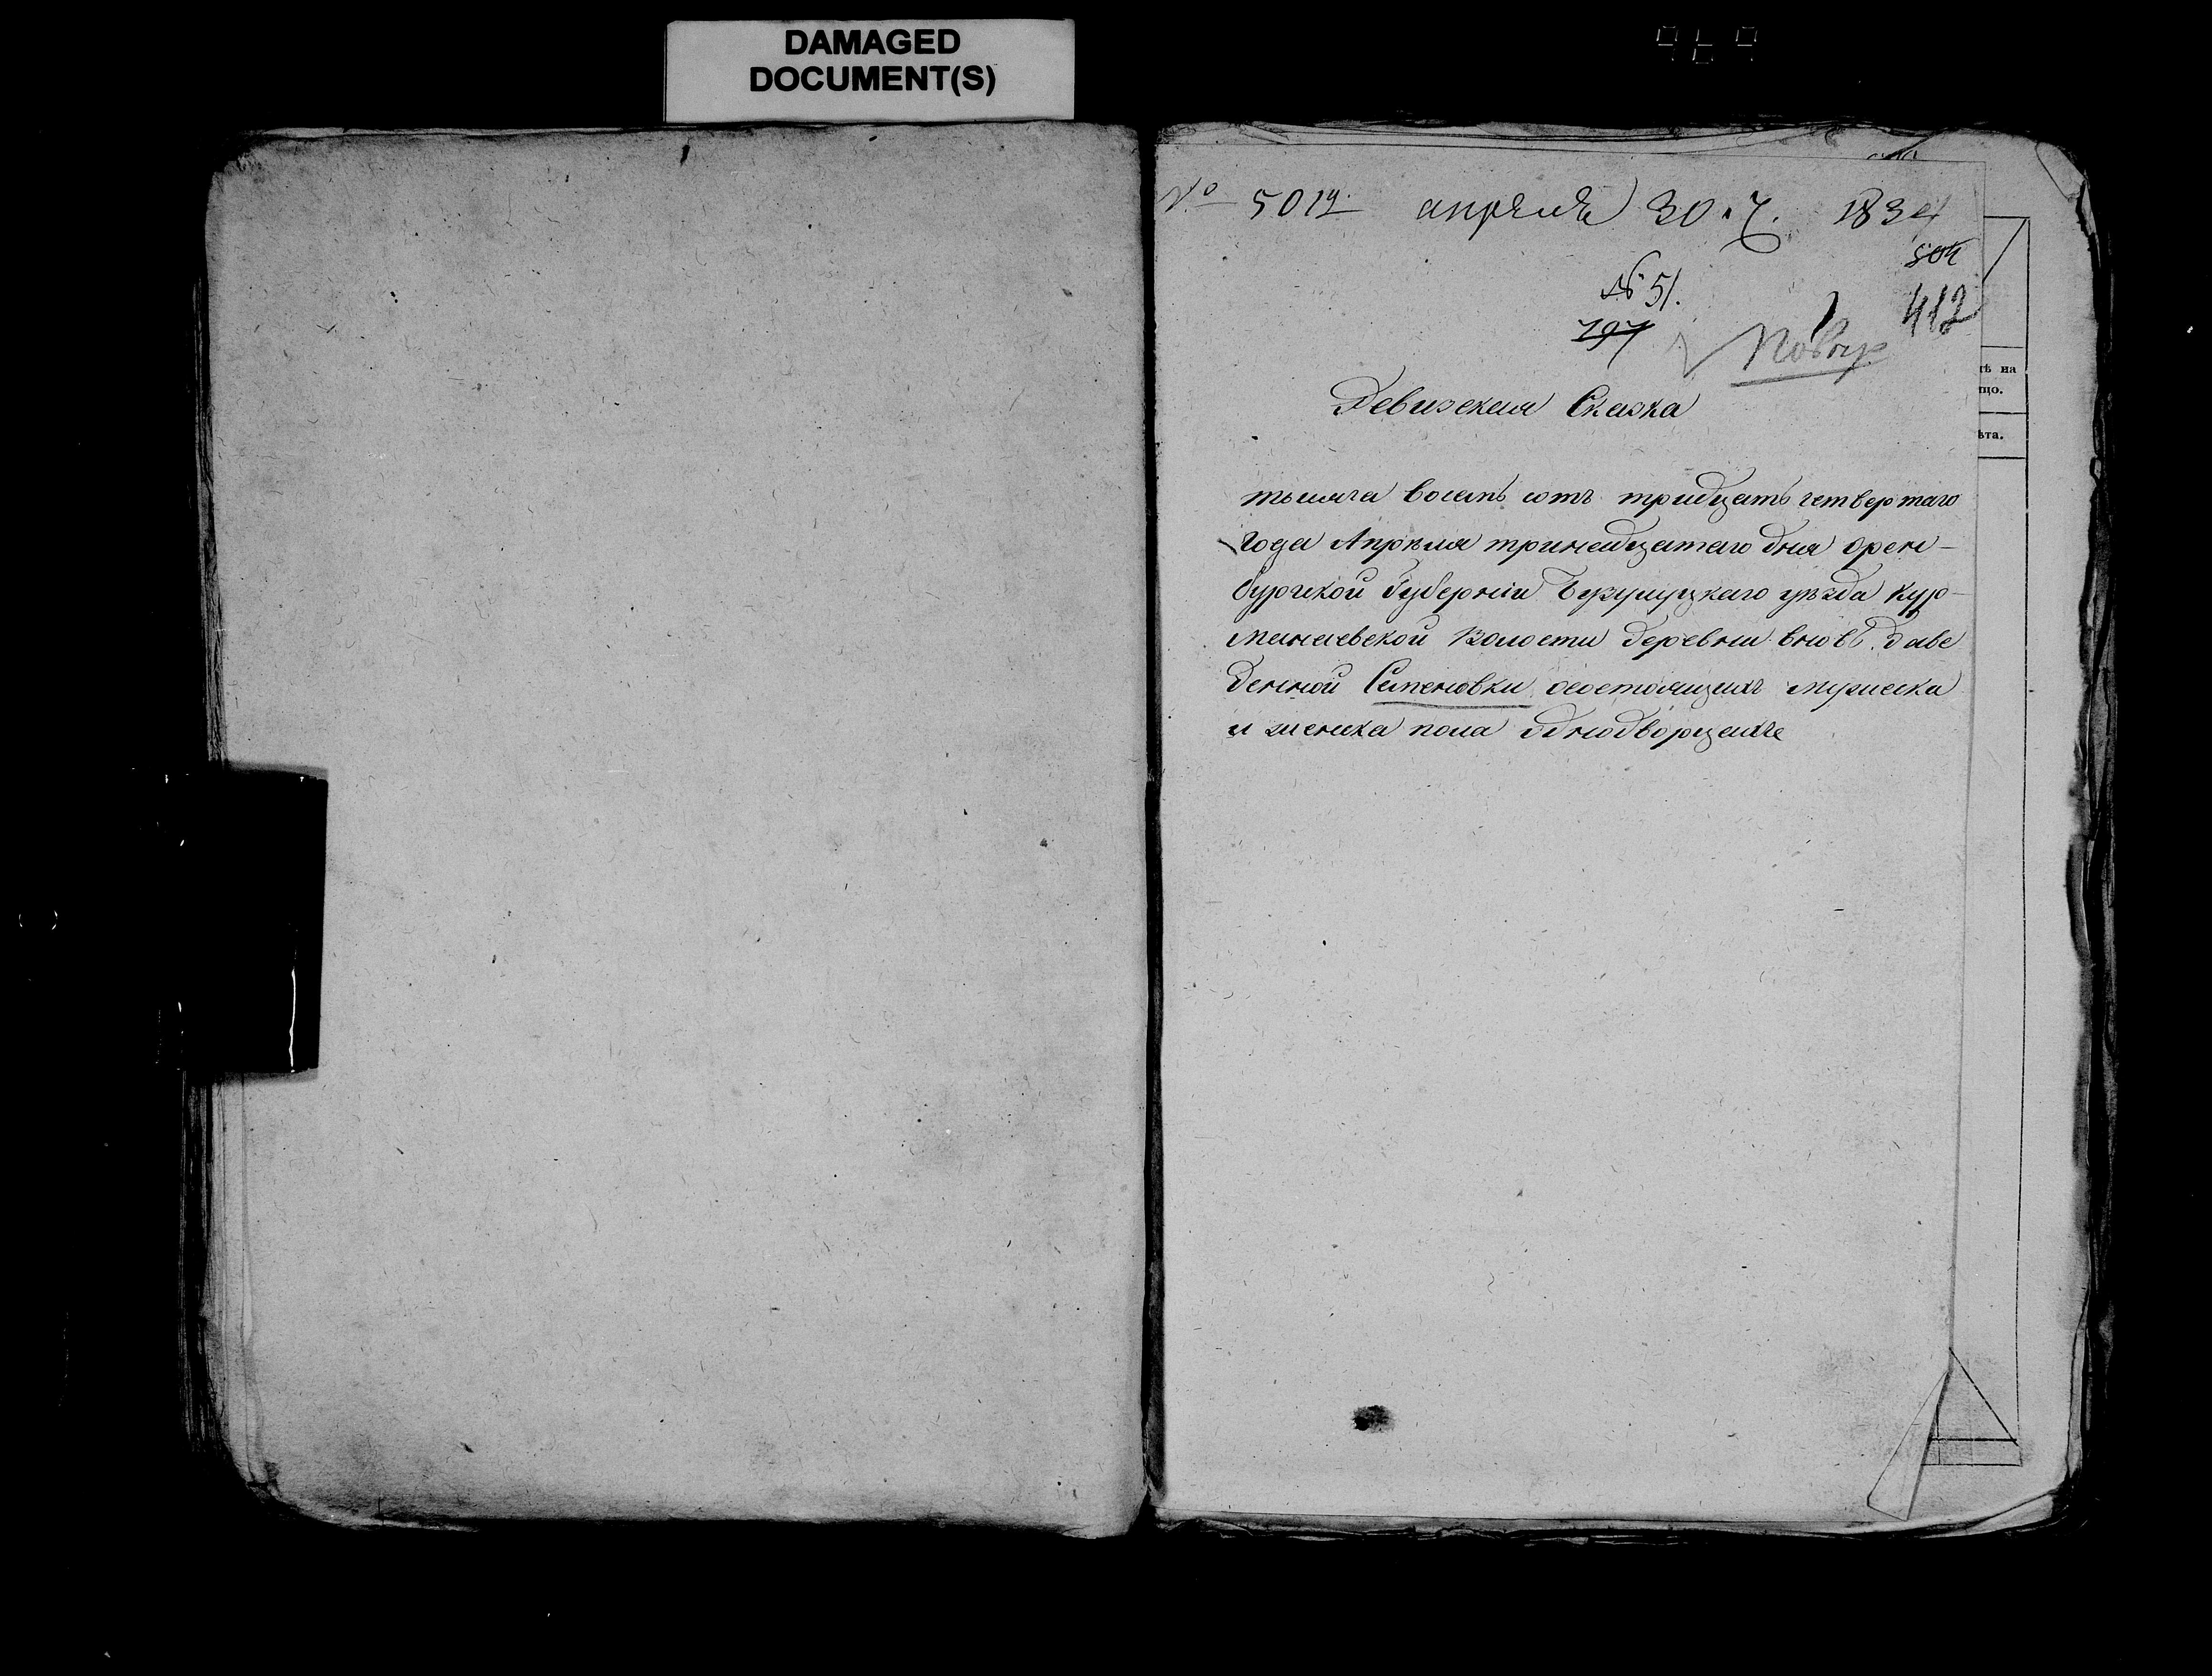 DAMAGED
DOCUMENT(S)
№ 5012. апрѣля 30. Ч. 1834
504
№ 51.
412
797
Повтр
Ревизская Сказка
тѣ на
що.
ѣта.
тысяча восемь сотъ тридцать четвертаго
года Апрѣля тринадцатаго дня Орен-
бургской Губерніи Бузулуцкаго уѣзда Кур-
манаевской Волости деревни вновь. заве
денной Семеновки осостоящихъ мужеска
и женска пола однодворцахъ